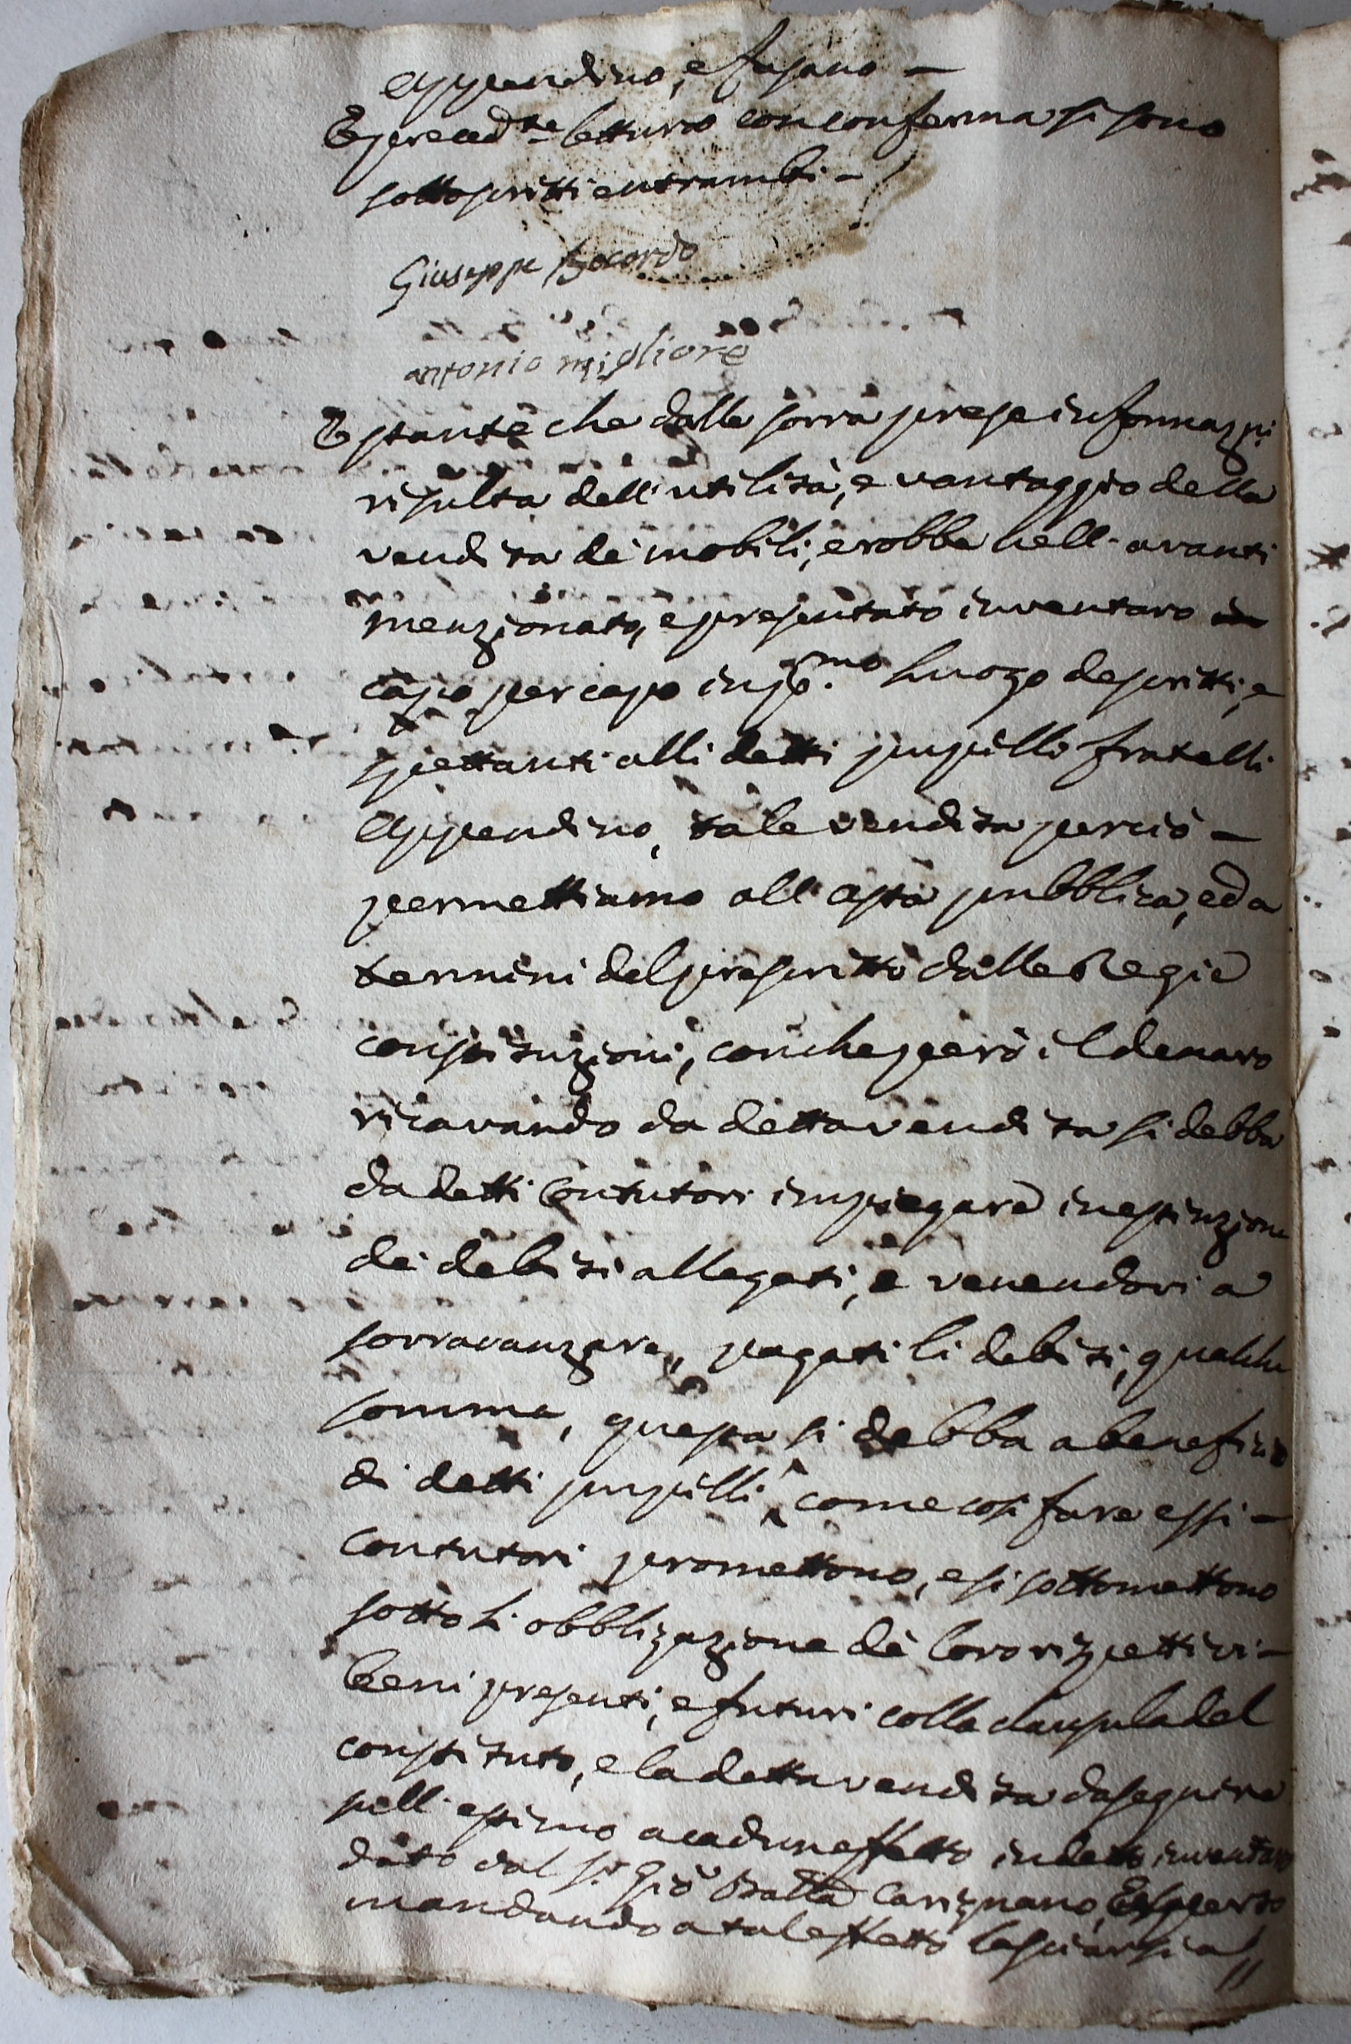 Appendino, e fasano —
E preced.te lettura con conferma si sono
sottoscritti entrambi —
Giuseppe Bocardo
antonio migliore
E stante che dalle sovra prese informaz.ni
risulta dell'utilità, e vantaggio della
vendita de mobili, e robbe nell'avanti
menzionato, e presentato inventaro
capo per capo in p.mo luogo descritti, e
spettanti alli detti pupilli fratelli
Appendino, tale vendita perciò —
permettiamo all'asta pubblica, ed a
termini del prescritto dalle Regie
constituzioni, con che però il denaro
ricavando da detta vendita si debba
da detti Contutori impiegare in estinzione
de debiti allegati, e venendovi a
sovravanzare, pagati li debiti, qualche
somma, questa si debba a benefizio
di detti pupilli, come così fare essi —
contutori promettono, e si sottomettono
sotto l'obbligazione de loro rispettivi —
beni presenti, e futuri colla clausula del
constituto, e la detta vendita da seguire
sull'estimo a cadun effetto in detto inventaro
dato dal s.r Gio Batta Carignano, Esperto
mandando a tal effetto lasciarsi a//